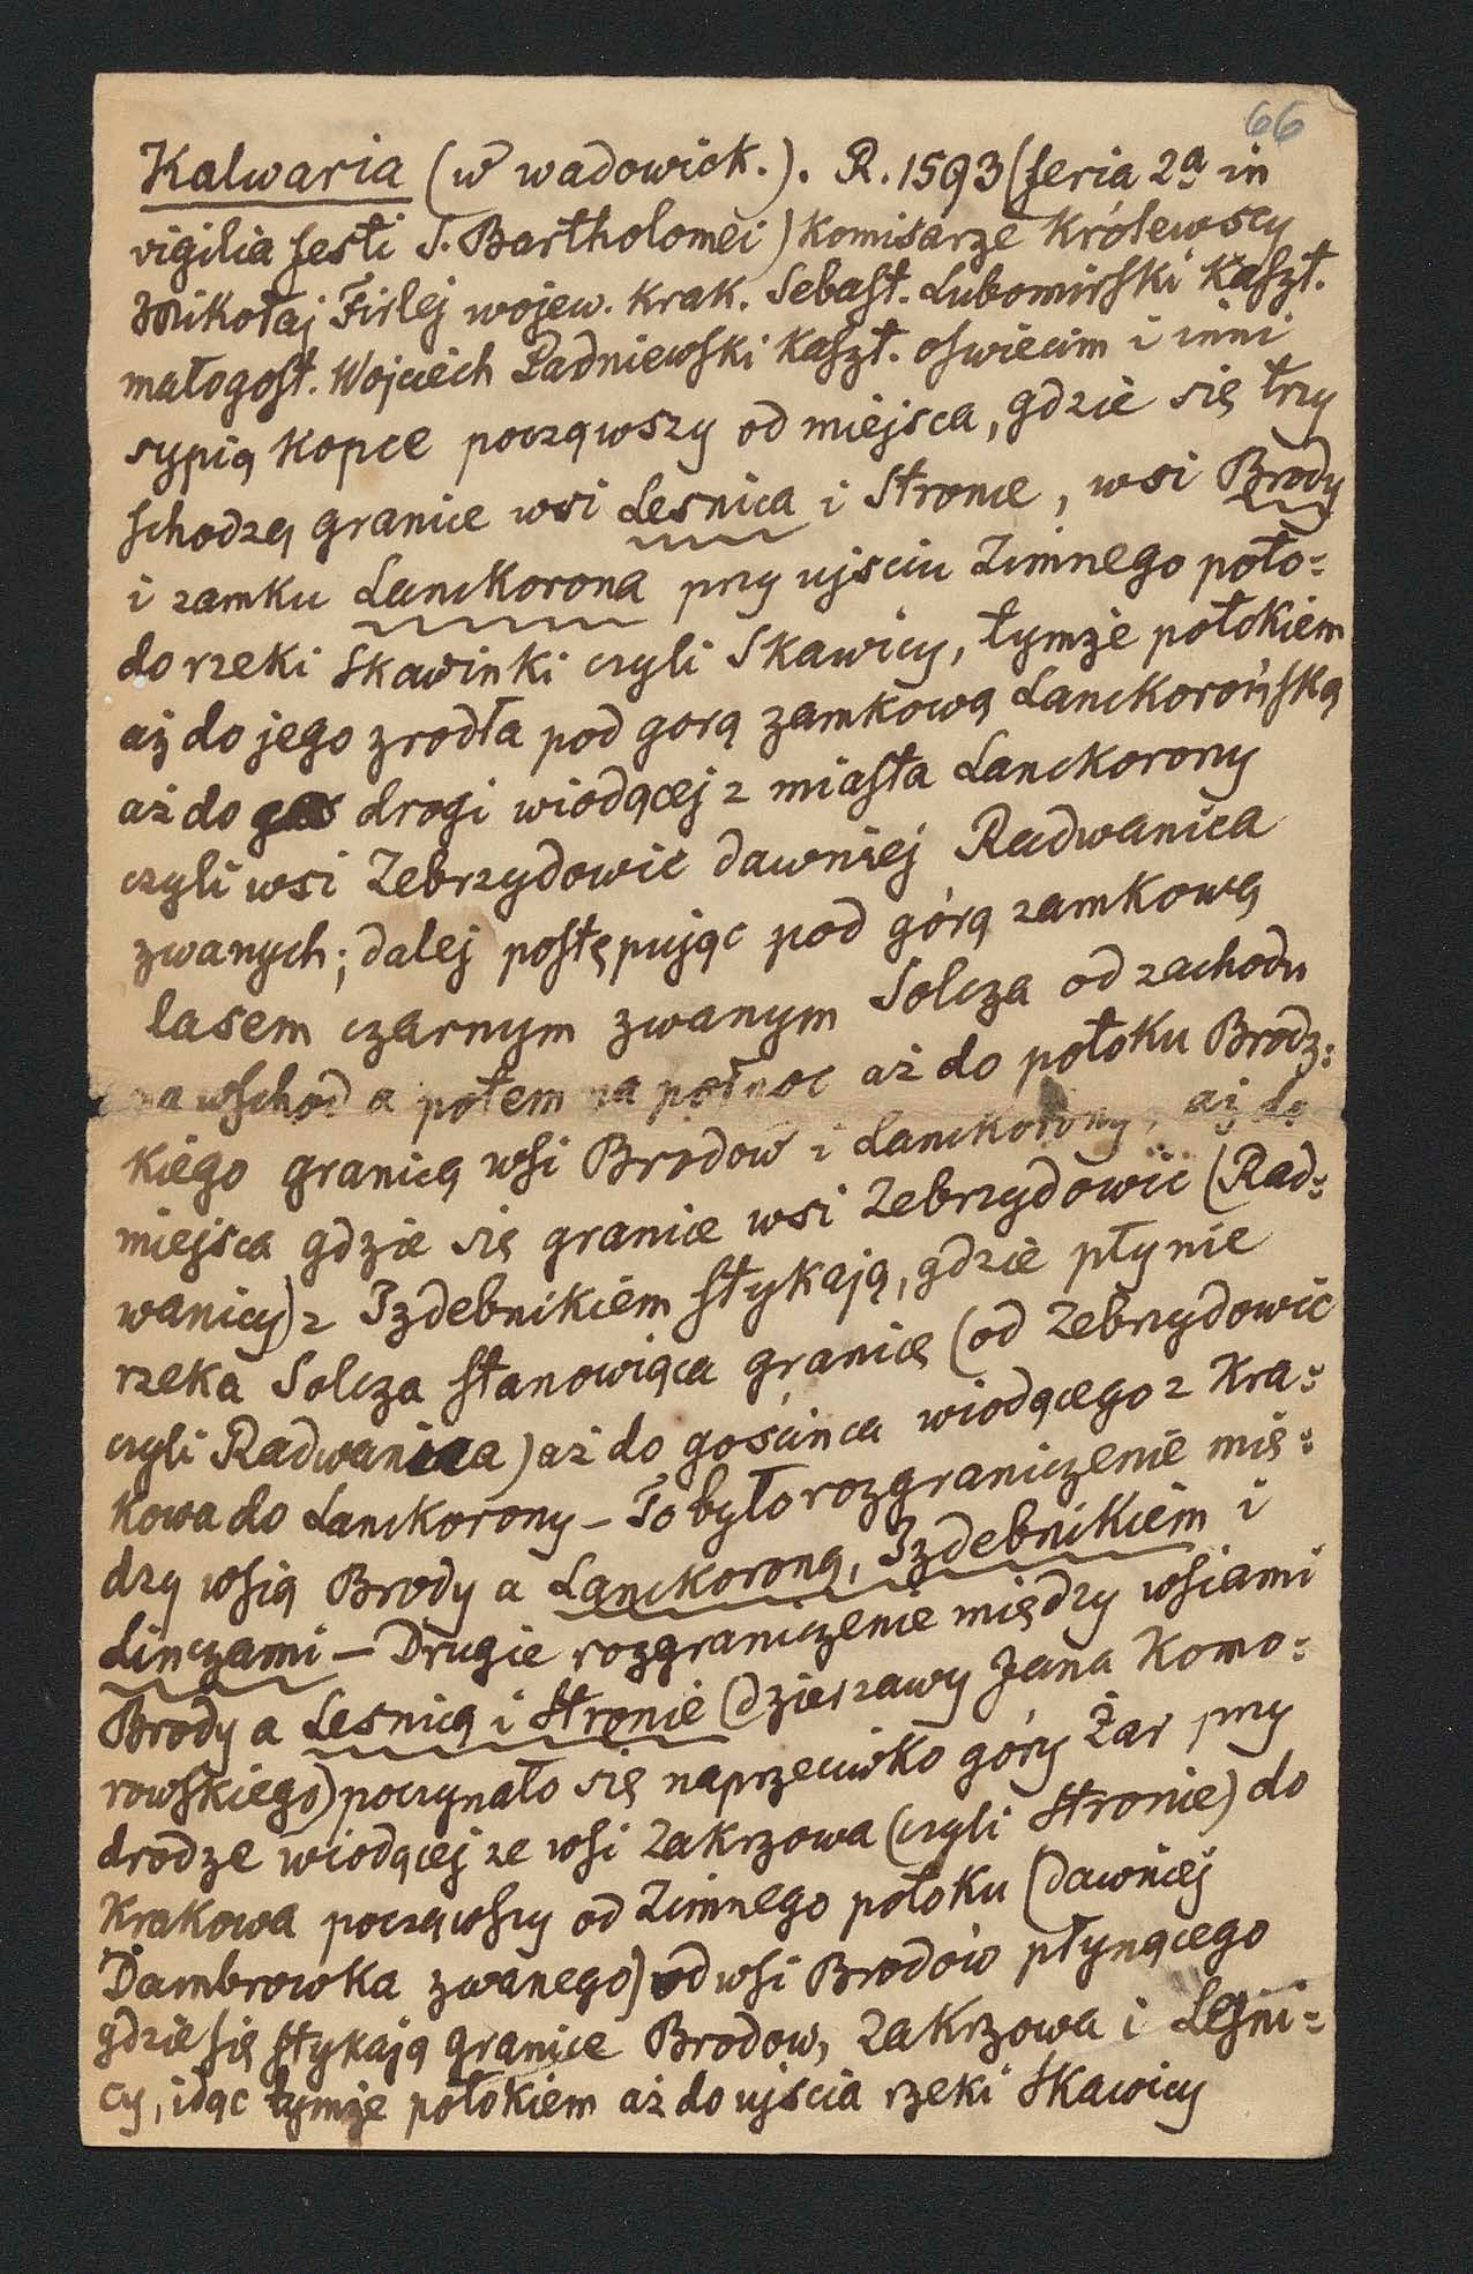 66
Kalwaria (w wadowick.). R. 1593 (feria 2a in
vigilia festi S. Bartholomei) Komisarze Królewscy
Mikołaj Firlej wojew. Krak. Sebast. Lubomirski Kaszt.
małogost. Wojciech Padniewski Kaszt. oswiecim i inni
sypią Kopce począwszy od miejsca, gdzie się trzy
schodzą granice wsi Lesnica i Stronie, wsi Brody
i zamku Lanckorona przy ujsciu Zimnego poto=
do rzeki Skawinki czyli Skawicy, tymże potokiem
aż do jego zrodła pod gorą zamkową Lanckorońską
aż do drogi wiodącej z miasta Lanckorony
czyli wsi Zebrzydowic dawniej Radwanica
zwanych; dalej postępując pod górą zamkową
lasem czarnym zwanym Solcza od zachodu
na wschod a potem na połnoc aż do potoku Brodz=
kiego granicą wsi Brodow i Lanckorony, aż do
miejsca gdzie się granice wsi Zebrzydowic (Rad=
wanicy) z Izdebnikiem stykają, gdzie płynie
rzeka Solcza stanowiąca granicę (od Zebrzydowic
czyli Radwanica) aż do gościnca wiodącego z Kra=
Kowa do Lanckorony – To było rozgraniczenie mię=
dzy wsią Brody a Lanckoroną, Izdebnikiem i
Linczami – Drugie rozgraniczenie między wsiami
Brody a Lesnicą i Stronie (dzierzawy Jana Komo=
rowskiego) poczynało się naprzeciwko góry Żar przy
drodze wiodącej ze wsi Zakrzowa (czyli Stronie) do
Krakowa począwszy od Zimnego potoku (dawniej
Dambrowka zwanego) od wsi Brodów płynącego
gdzie się stykają granice Brodow, Zakrzowa i Leśni=
cy, idąc tymże potokiem aż do ujscia rzeki Skawicy